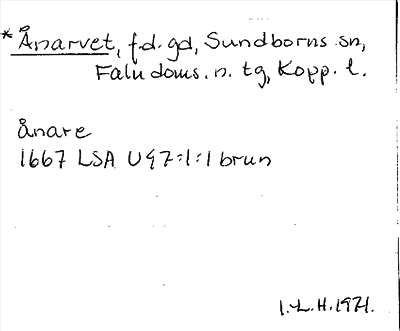 *Ånarvet, f.d. gd, Sundborns sn,
Falu doms. n. tg, Kopp. l.
ånare
1667 LSA U47:1:1 brun
I.L.H. 1971.